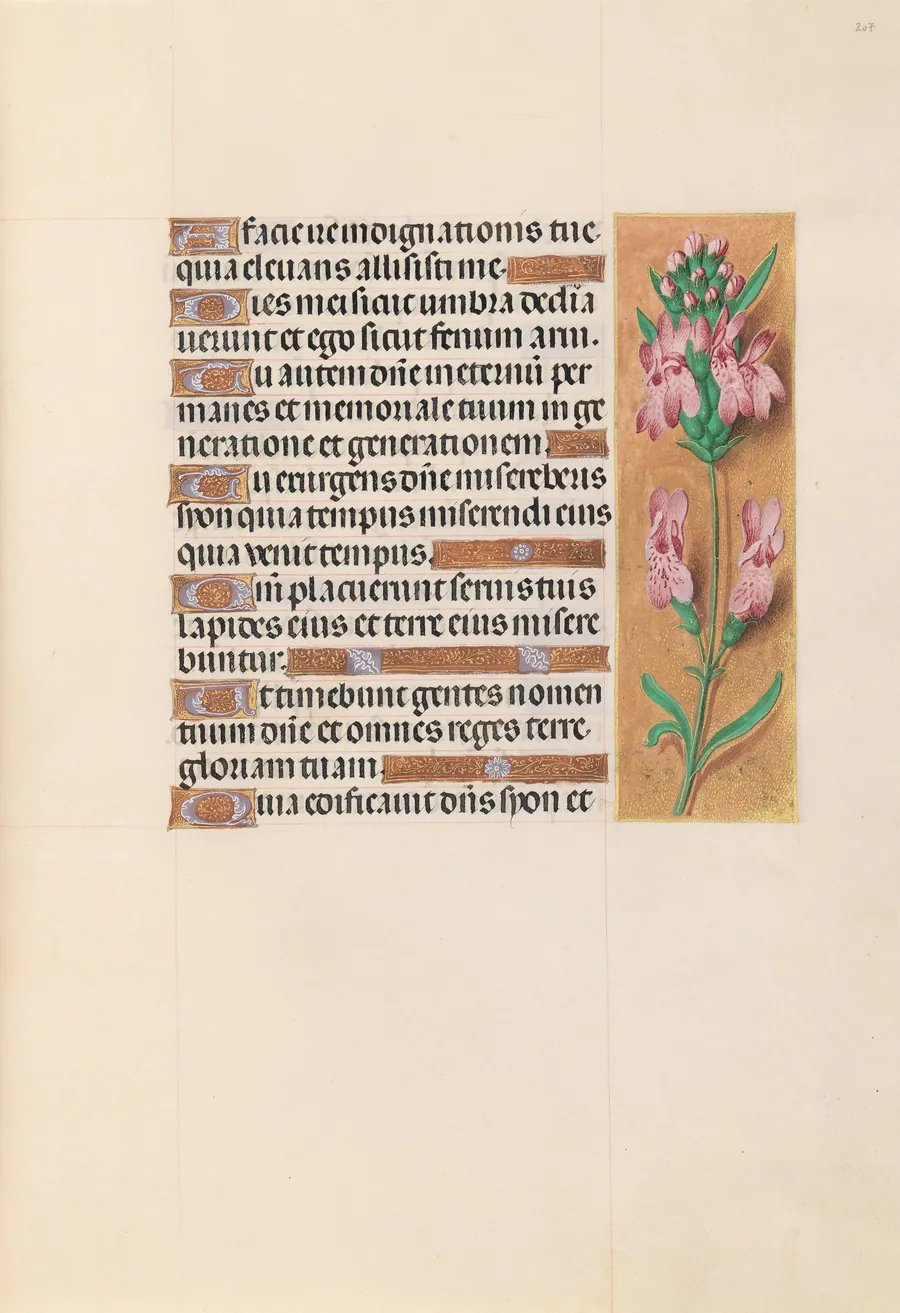 207
A facie ire indignationis tue
quia elevans allisisti me.
Dies mei sicut umbra decli͞a
verunt et ego sicut fenum arui.
Tu autem dn͞e in eternu͞ per
manes et memoriale tuum in ge
neratione et generationem.
Tu exurgens dn͞e misereberis
syon quia tempus miserendi eius
quia venit tempus.
Qm͞ placuerunt servis tuis
lapides eius et terre eius misere
buntur.
Et timebunt gentes nomen
tuum dn͞e et omnes reges terre
gloriam tuam.
Quia edificavit dn͞s syon et